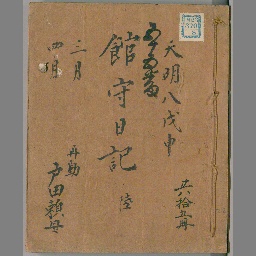 天明八戊申
館守日記
陸
三月
四月
再勤
戸田頼母
共拾五冊